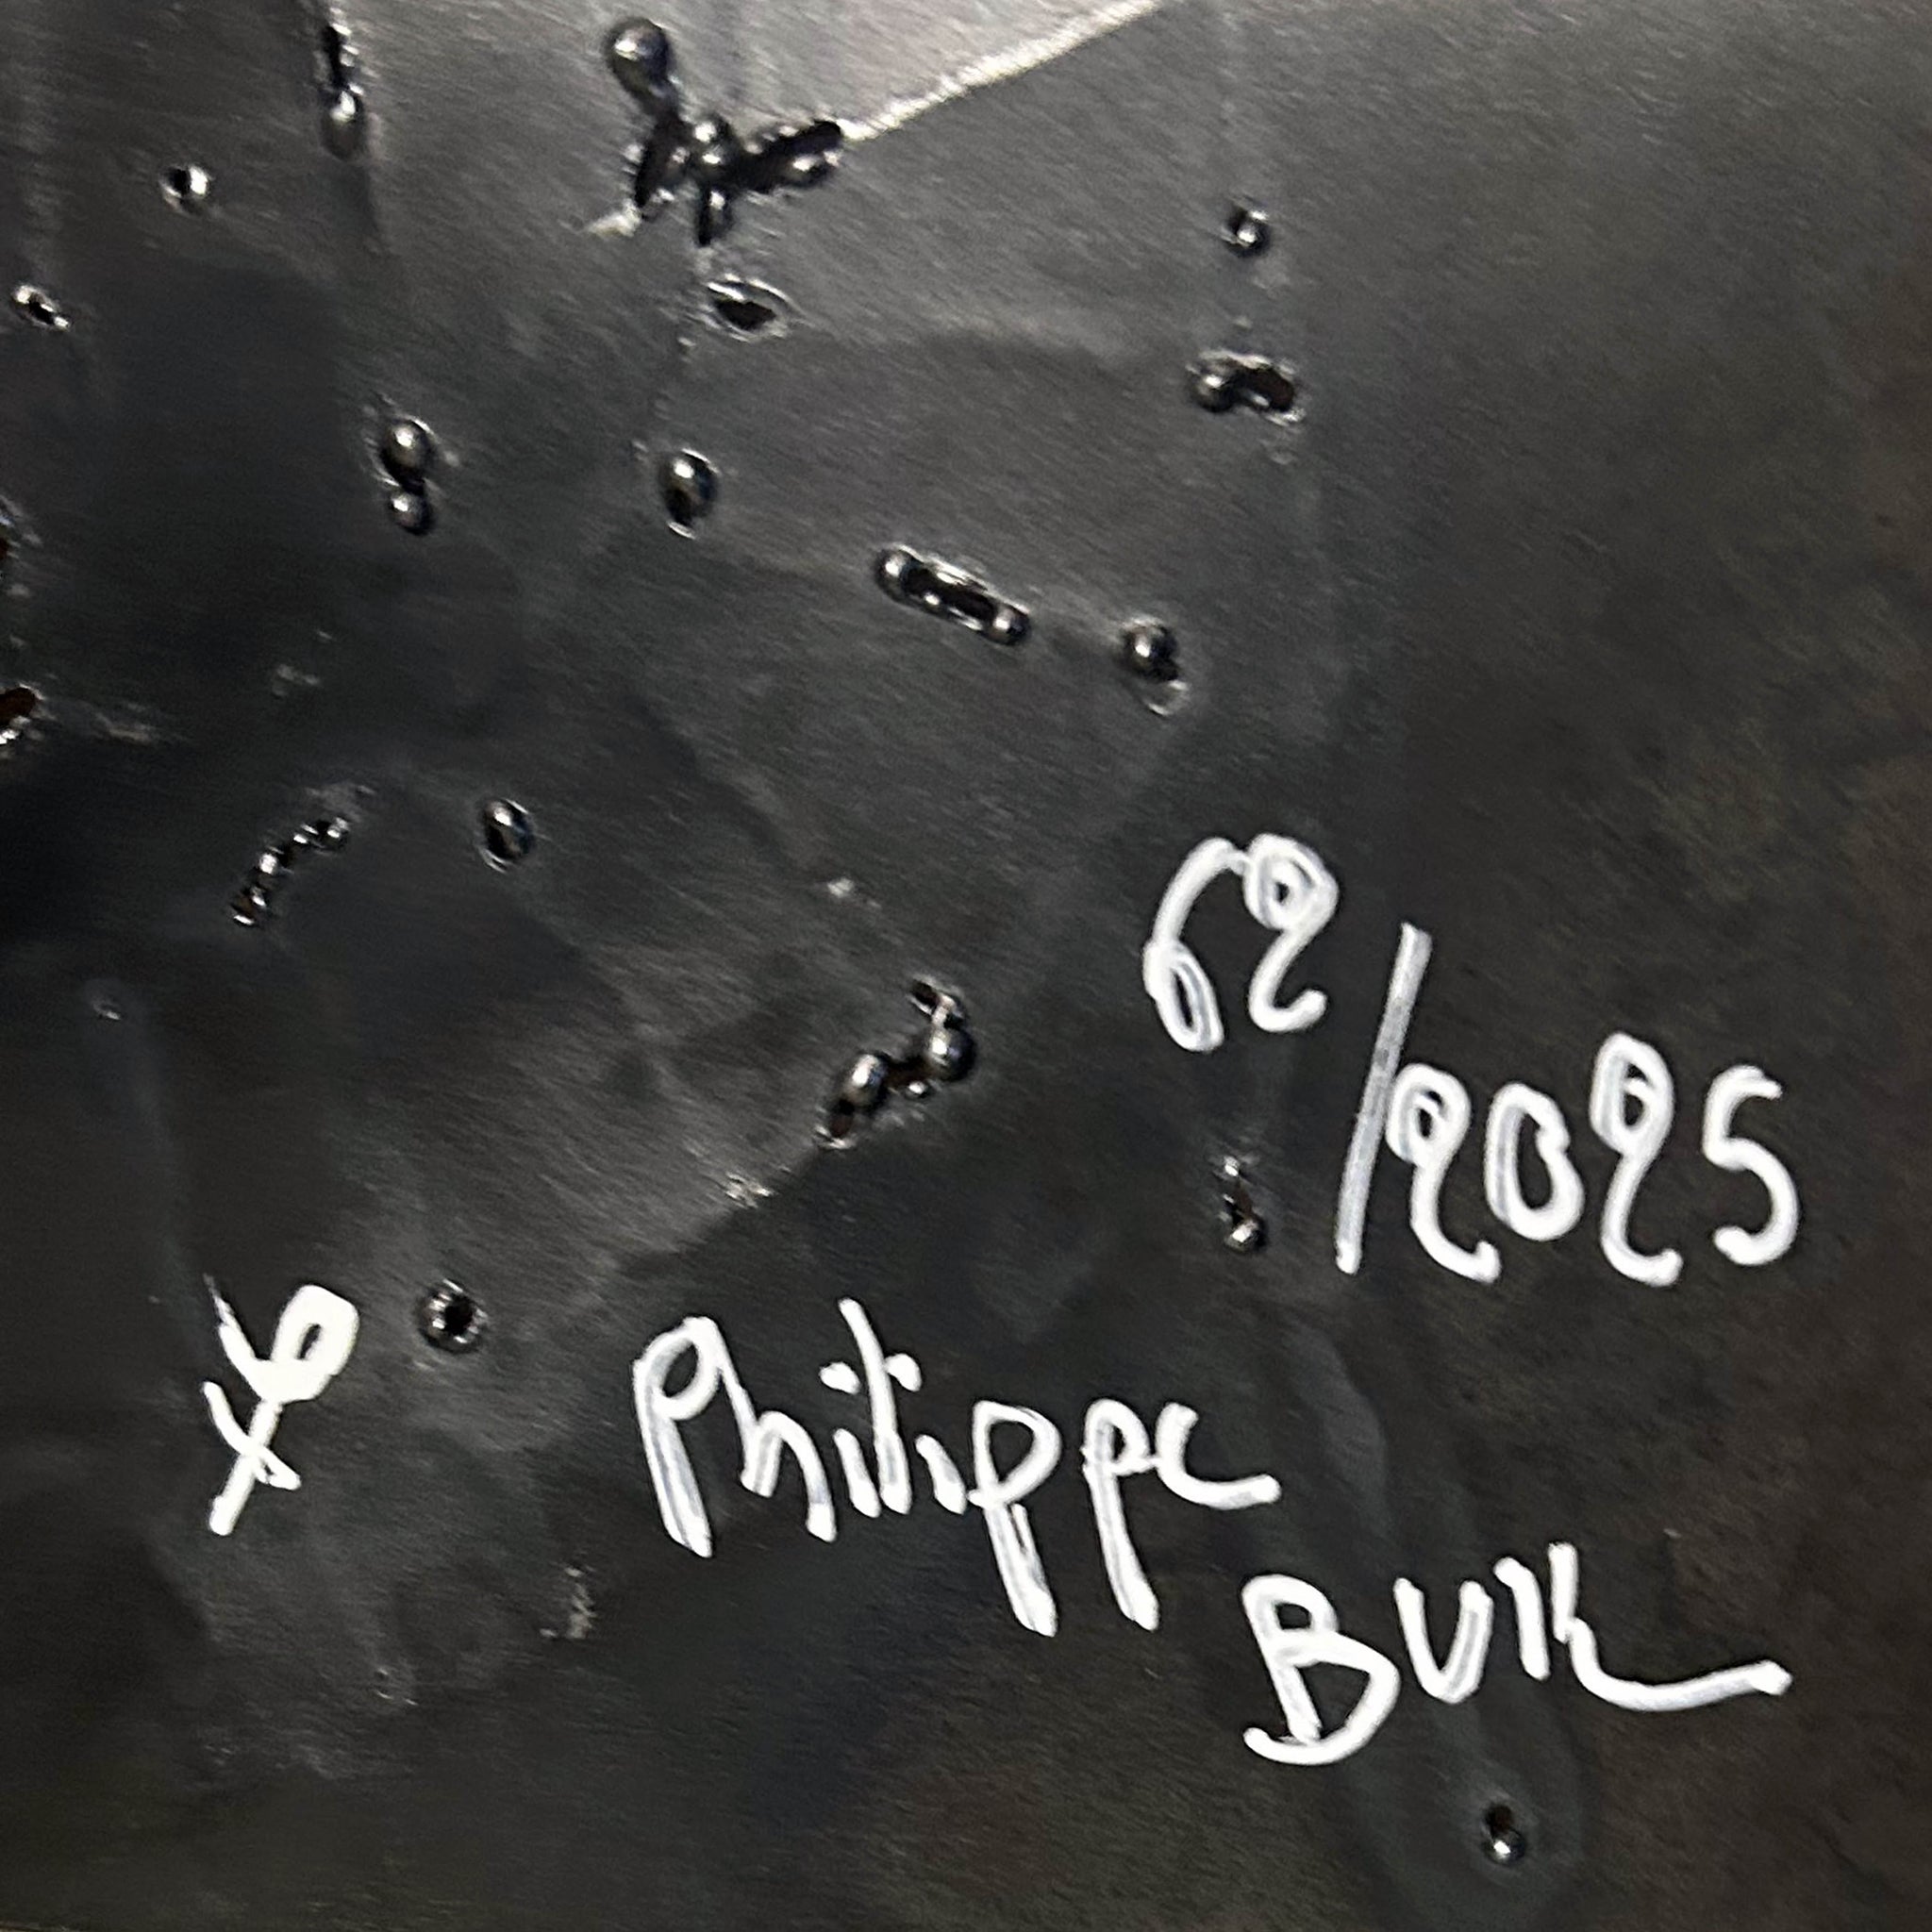 62
/2025
Philippe
BUK